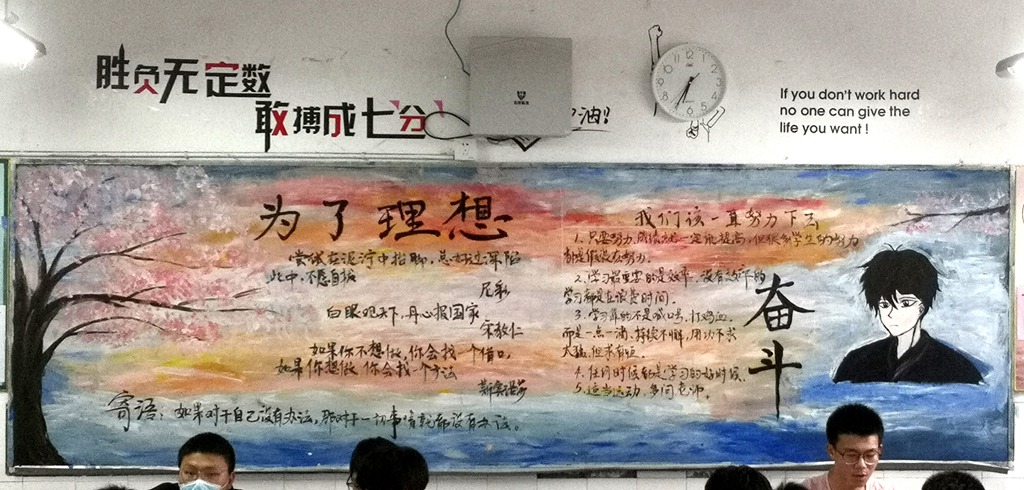 胜负无定数
敢搏成七分
油!
If you don't work hard
no one can give the
life you want !
为了理想
尝试在泥泞中抬脚,总好过深陷
此中,不愿自拔
尼采
白眼观天下,丹心报国家
宋教仁
如果你不想做,你会找一个借口,
如果你想做,你会找一个方法
寄语:如果对于自己没有办法,那对于一切事情就都没有办法。
我们该一直努力下去
1.只要努力,成绩就一定能提高,但很多学生的努力
都是假装在努力。
2.学习最重要的是效率,没有效率的
学习都是在浪费时间。
3.学习靠的不是喊口号,打鸡血,
而是一点一滴,持续不懈,用功不求
太猛,但求有恒。
4.任何时候都是学习的好时候。
5.适当运动,多问老师。
奋斗